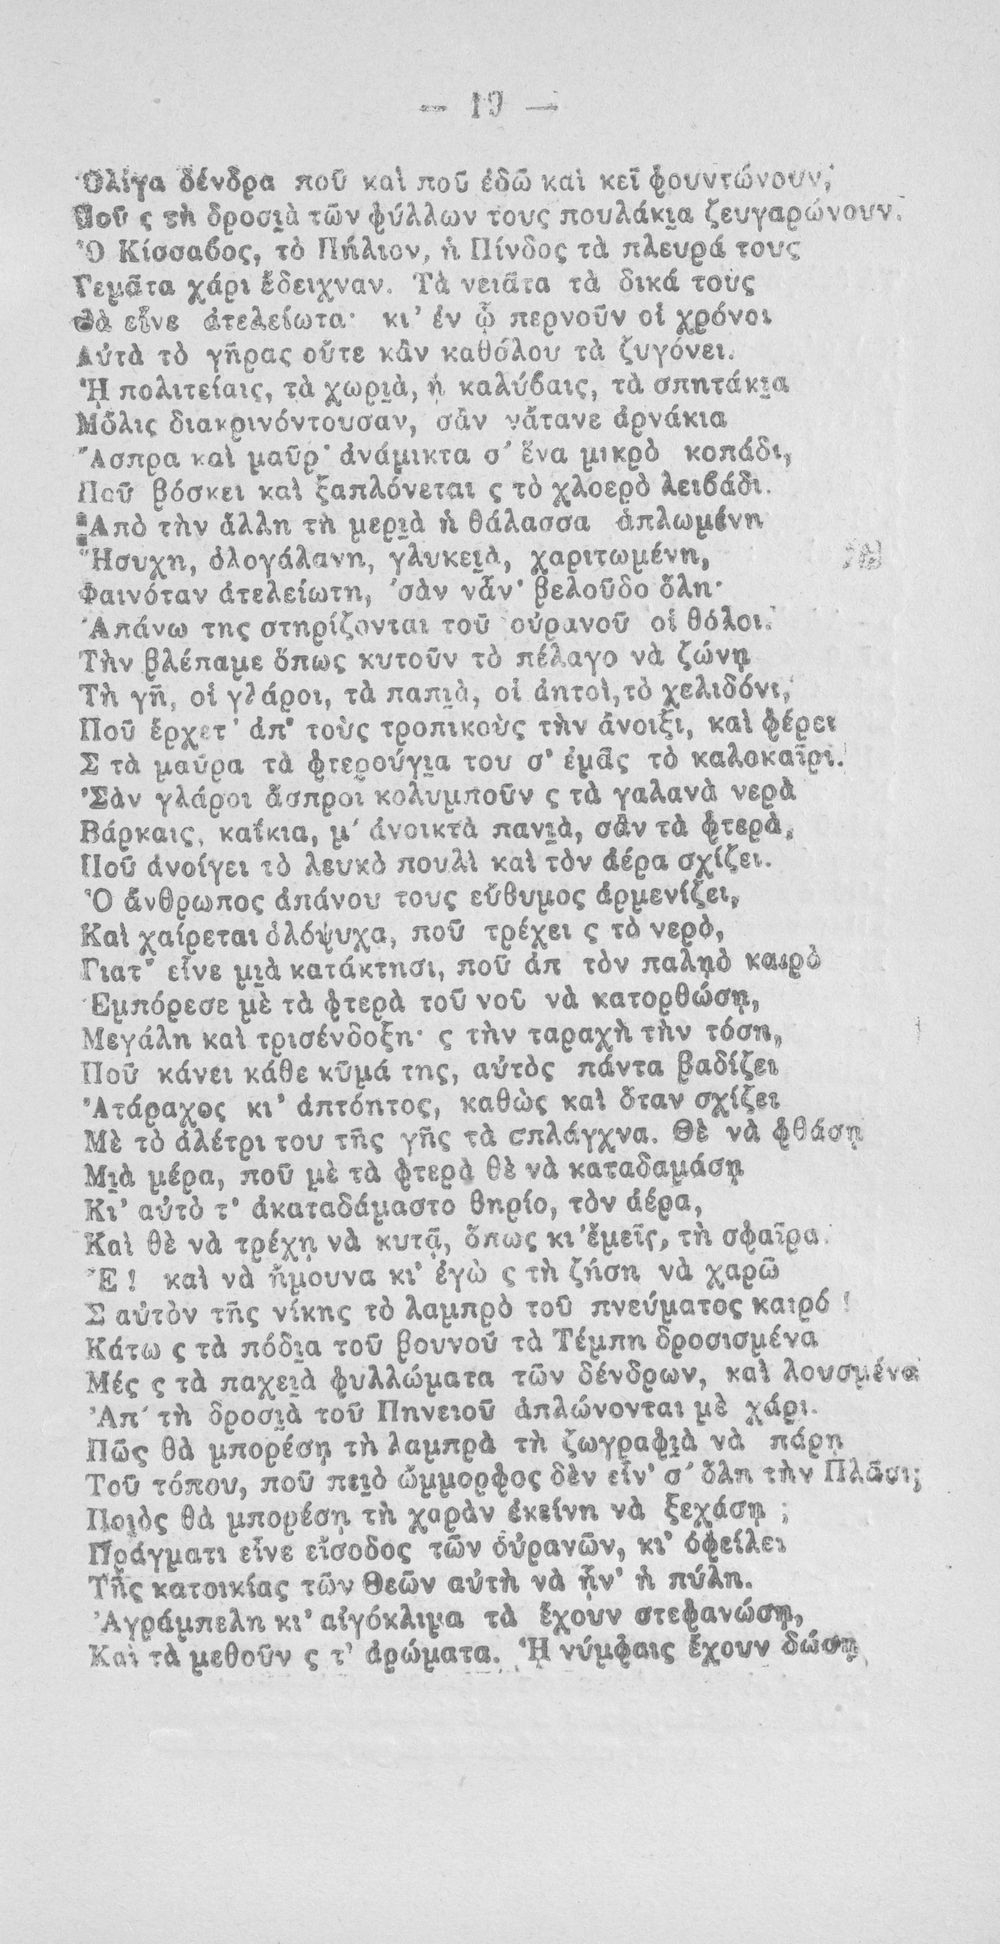 — 19 —
Ὀλίγα δένδρα ποῦ καὶ ποῦ ἐδῶ καὶ κεῖ φουντώνουν,
Ποῦ ς τὴ δροσιὰ τῶν φύλλων τους πουλάκια ζευγαρώνουν.
Ὁ Κίσσαβος, τὸ Πήλιον, ἡ Πίνδος τὰ πλευρά τους
Γεμᾶτα χάρι ἔδειχναν. Τὰ νειᾶτα τὰ δικά τους
Θὰ εἶνε ἀτελείωτα· κι’ ἐν ᾧ περνοῦν οἱ χρόνοι
Αὐτὰ τὸ γῆρας οὔτε κἂν καθόλου τὰ ζυγόνει.
Ἡ πολιτείαις, τὰ χωριὰ, ἡ καλύβαις, τὰ σπητάκια
Μόλις διακρινόντουσαν, σὰν νἄτανε ἀρνάκια
Ἄσπρα καὶ μαῦρ’ ἀνάμικτα σ’ ἕνα μικρὸ κοπάδι,
Ποῦ βόσκει καὶ ξαπλόνεται ς τὸ χλοερὸ λειβάδι.
Ἀπὸ τὴν ἄλλη τὴ μεριὰ ἡ θάλασσα ἁπλωμένη
Ἥσυχη, ὁλογάλανη, γλυκειὰ, χαριτωμένη,
Φαινόταν ἀτελείωτη, ’σὰν νἆν’ βελοῦδο ὅλη·
Ἀπάνω της στηρίζονται τοῦ οὐρανοῦ οἱ θόλοι.
Τὴν βλέπαμε ὅπως κυτοῦν τὸ πέλαγο νὰ ζώνῃ
Τὴ γῆ, οἱ γλάροι, τὰ παπιὰ, οἱ ἀητοὶ, τὸ χελιδόνι,
Ποῦ ἔρχετ’ ἀπ’ τοὺς τροπικοὺς τὴν ἄνοιξι, καὶ φέρει
Σ τὰ μαῦρα τὰ φτερούγια του σ’ ἐμᾶς τὸ καλοκαῖρι.
’Σὰν γλάροι ἄσπροι κολυμποῦν ς τὰ γαλανὰ νερὰ
Βάρκαις, καΐκια, μ’ ἀνοικτὰ πανιὰ, σἂν τὰ φτερὰ,
Ποῦ ἀνοίγει τὸ λευκὸ πουλὶ καὶ τὸν ἀέρα σχίζει.
Ὁ ἄνθρωπος ἀπάνου τους εὔθυμος ἀρμενίζει,
Καὶ χαίρεται ὁλόψυχα, ποῦ τρέχει ς τὸ νερὸ,
Γιατ’ εἶνε μιὰ κατάκτησι, ποῦ ἀπ τὸν παληὸ καιρὸ
Ἐμπόρεσε μὲ τὰ φτερὰ τοῦ νοῦ νὰ κατορθώσῃ,
Μεγάλη καὶ τρισένδοξη· ς τὴν ταραχὴ τὴν τόση,
Ποῦ κάνει κάθε κῦμά της, αὐτὸς πάντα βαδίζει
Ἀτάραχος κι’ ἀπτόητος, καθὼς καὶ ὅταν σχίζει
Μὲ τὸ ἀλέτρι του τῆς γῆς τὰ σπλάγχνα. Θὲ νὰ φθάσῃ
Μιὰ μέρα, ποῦ μὲ τὰ φτερὰ θὲ νὰ καταδαμάσῃ
Κι’ αὐτὸ τ’ ἀκαταδάμαστο θηρίο, τὸν ἀέρα,
Καὶ θὲ νὰ τρέχῃ νὰ κυτᾷ, ὅπως κι’ ἐμεῖς, τὴ σφαῖρα.
Ἒ! καὶ νὰ ἤμουνα κι’ ἐγὼ ς τὴ ζήση νὰ χαρῶ
Σ αὐτὸν τῆς νίκης τὸ λαμπρὸ τοῦ πνεύματος καιρό!
Κάτω ς τὰ πόδια τοῦ βουνοῦ τὰ Τέμπη δροσισμένα
Μές ς τὰ παχειὰ φυλλώματα τῶν δένδρων, καὶ λουσμένα
Ἀπ’ τὴ δροσιὰ τοῦ Πηνειοῦ ἁπλώνονται μὲ χάρι.
Πῶς θὰ μπορέσῃ τὴ λαμπρὰ τὴ ζωγραφιὰ νὰ πάρῃ
Τοῦ τόπου, ποῦ πειὸ ὤμμορφος δὲν εἶν’ σ’ ὅλη τὴν Πλᾶσι;
Ποιὸς θὰ μπορέσῃ τὴ χαρὰν ἐκείνη νὰ ξεχάσῃ ;
Πράγματι εἶνε εἴσοδος τῶν οὐρανῶν, κι’ ὀφείλει
Τῆς κατοικίας τῶν Θεῶν αὐτὴ νὰ ἦν’ ἡ πύλη.
Ἀγράμπελη κι’ αἰγόκλιμα τὰ ἔχουν στεφανώσῃ,
Καὶ τὰ μεθοῦν ς τ’ ἀρώματα. Ἡ νύμφαις ἔχουν δώσῃ